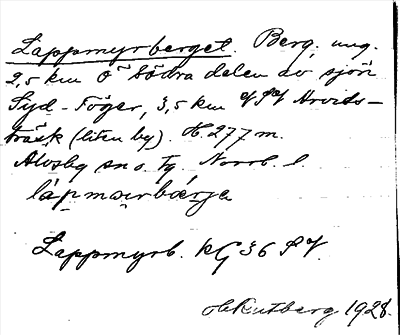 Lappmyrberget. Berg, ung.
2,5 km Ö södra delen av sjön
Syd-Föger, 3,5 km Arvids-
träsk (liten by). H. 277 m.
Älvsby sn o. tg. Norrb. l.
Lappmyrb. KG 36
Rutberg 1928.